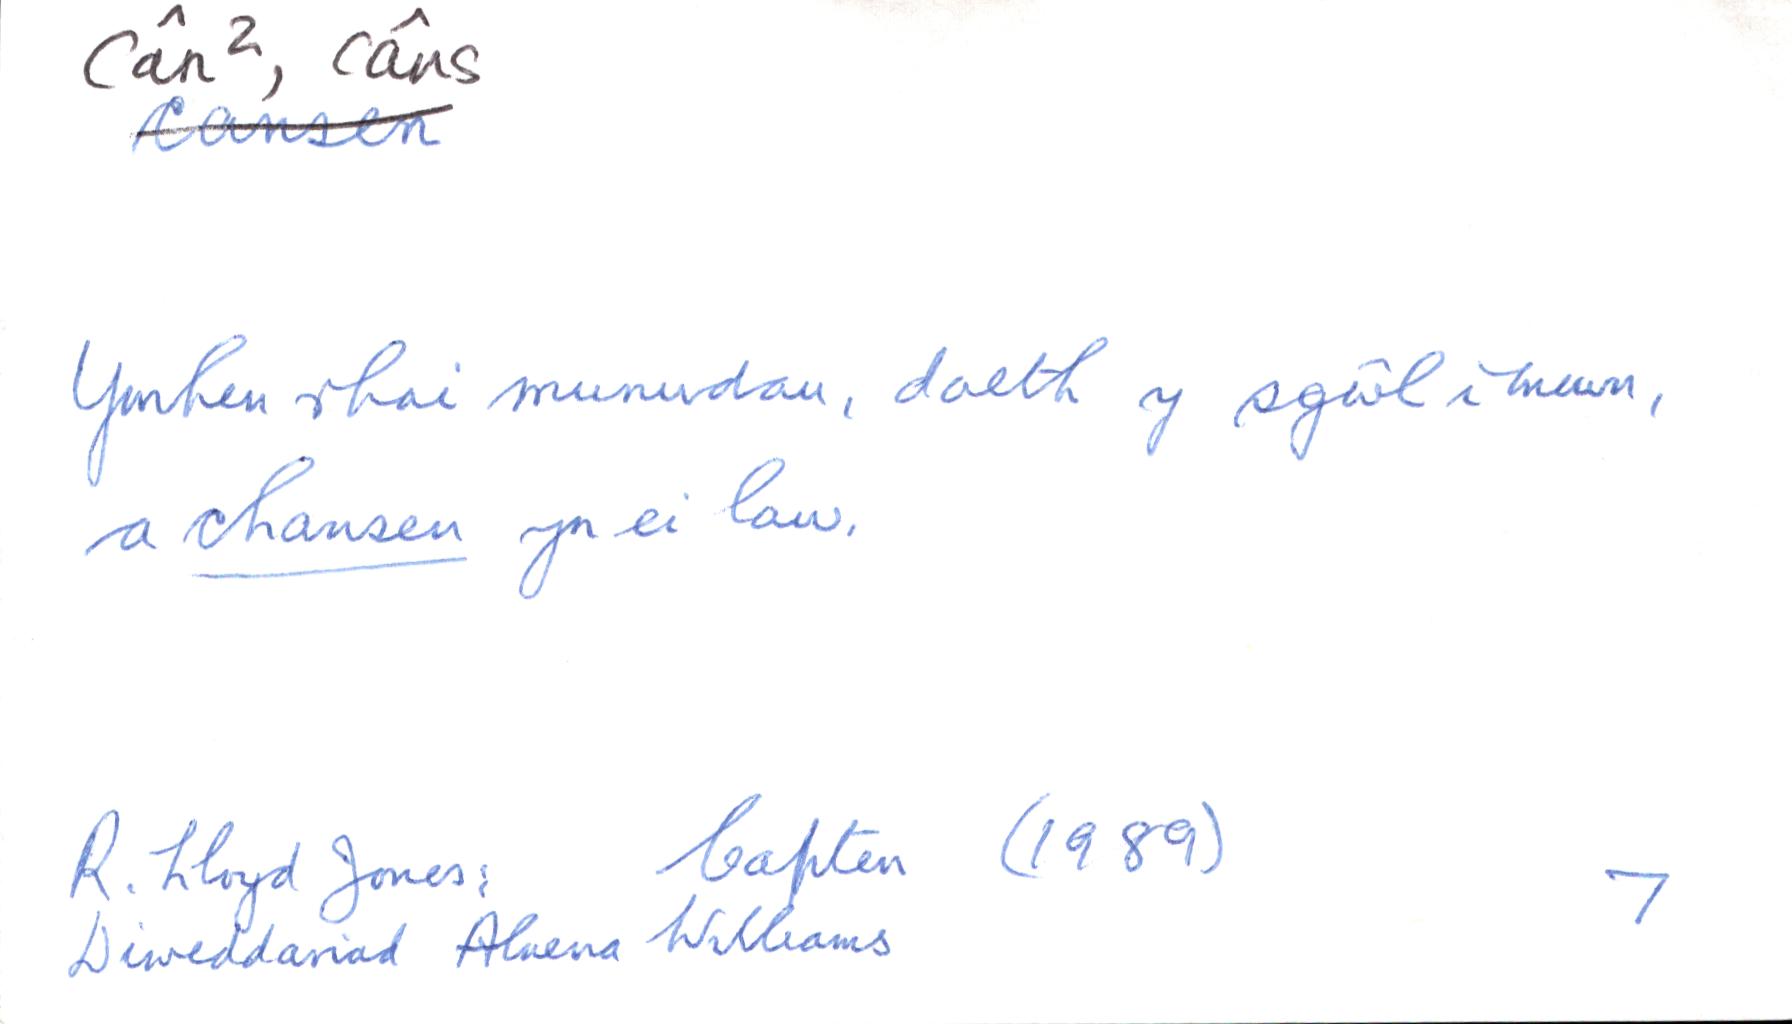 cân², câns
cansen
Ymhen rhai munudau, daeth y sgŵl i mewn,
a chansen yn ei law.
R. Lloyd Jones: Capten (1989)
7
Diweddariad Alwena Williams